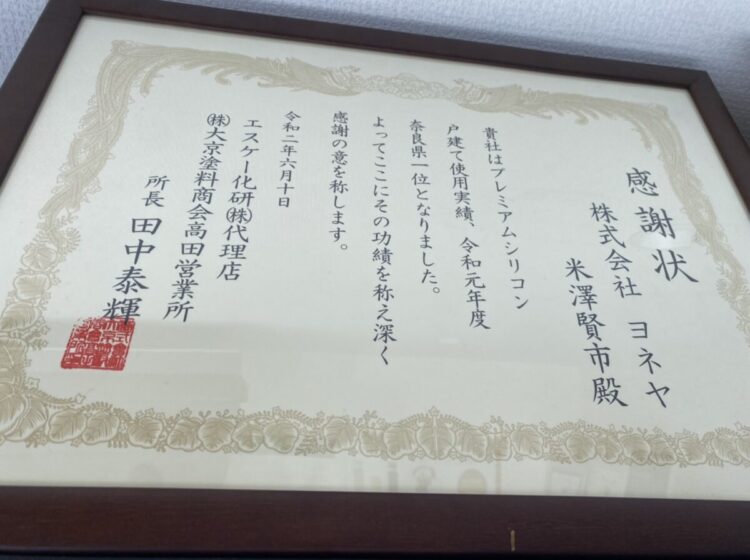 感謝状
株式会社 ヨネヤ
米澤賢市殿
貴社はプレミアムシリコン
戸建て使用実績、令和元年度
奈良県一位となりました。
よってここにその功績を称え深く
感謝の意を称します。
令和二年六月十日
エスケー化研㈱代理店
㈱大京塗料商会高田営業所
所長 田中泰輝